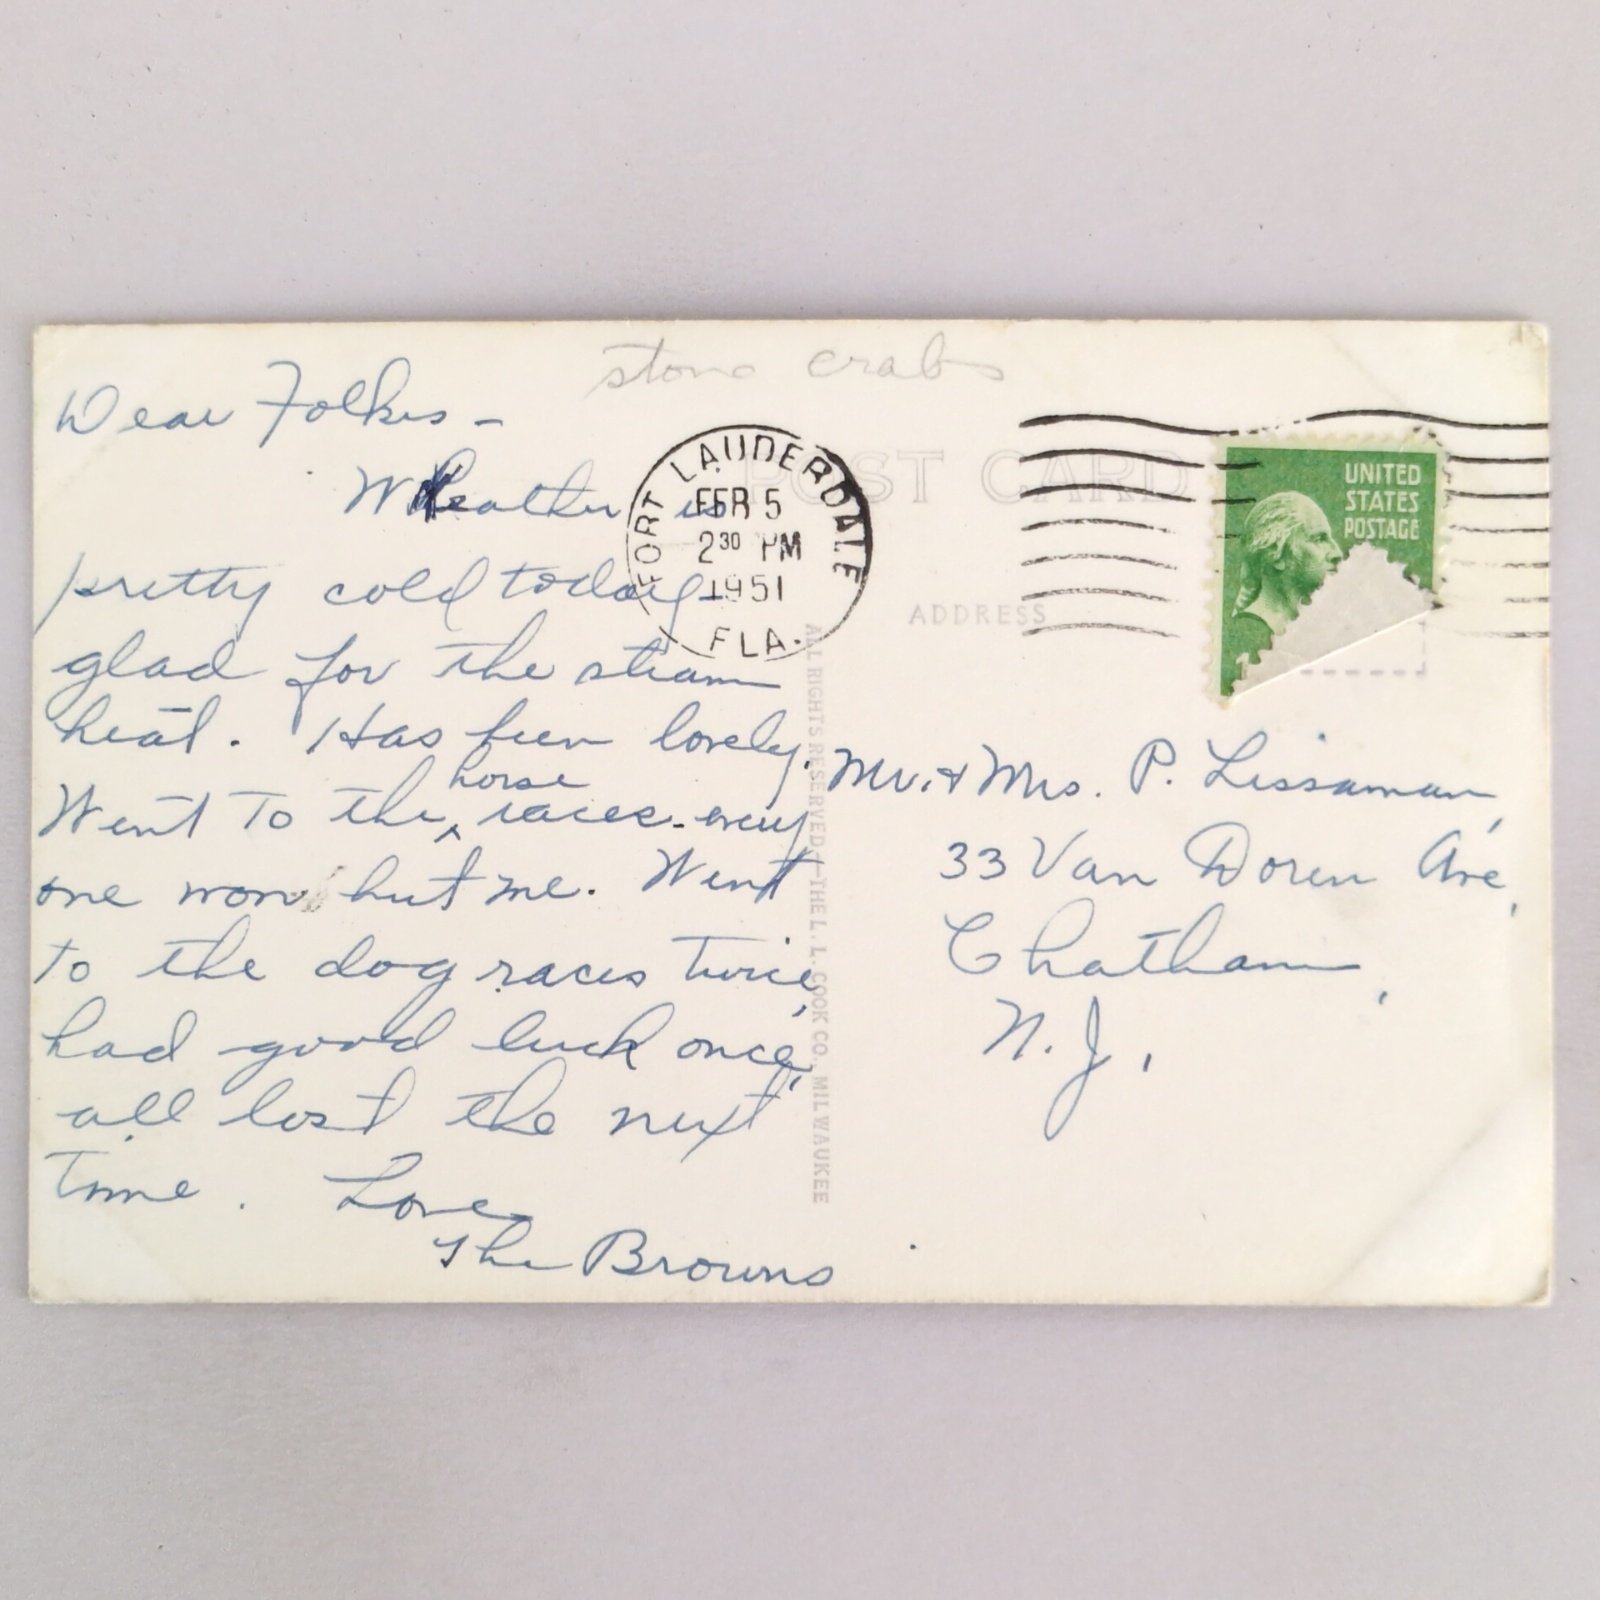 stone crabs
Dear Folkes -
Weather is
pretty cold today
glad for the steam
heat. Has been lovely.
Went to the horse races - every
one won but me. Went
to the dog races twice,
had good luck once,
all lost the next
time. Love,
The Browns
FORT LAUDERDALE
FEB 5
2 30 PM
1951
FLA.
POST CARD
ADDRESS
UNITED
STATES
POSTAGE
1
ALL RIGHTS RESERVED-THE L. L. COOK CO., MILWAUKEE
Mr. & Mrs. P. Lissaman,
33 Van Doren Ave,
Chatham,
N. J.,